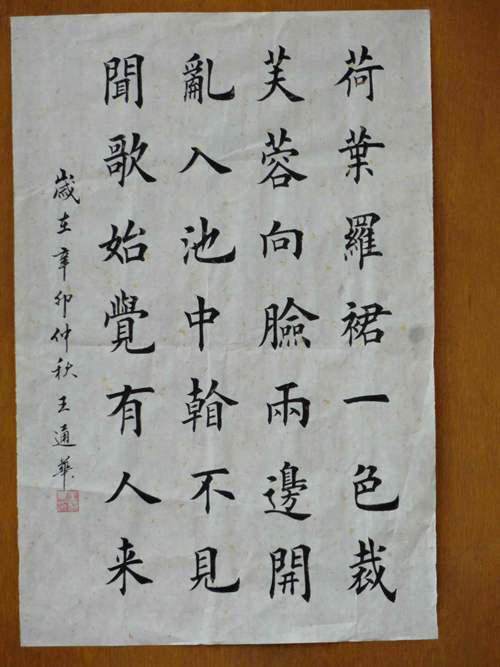 荷葉羅裙一色裁
芙蓉向臉兩邊開
亂入池中不見
聞歌始覺有人来
歲在辛卯仲秋王通華